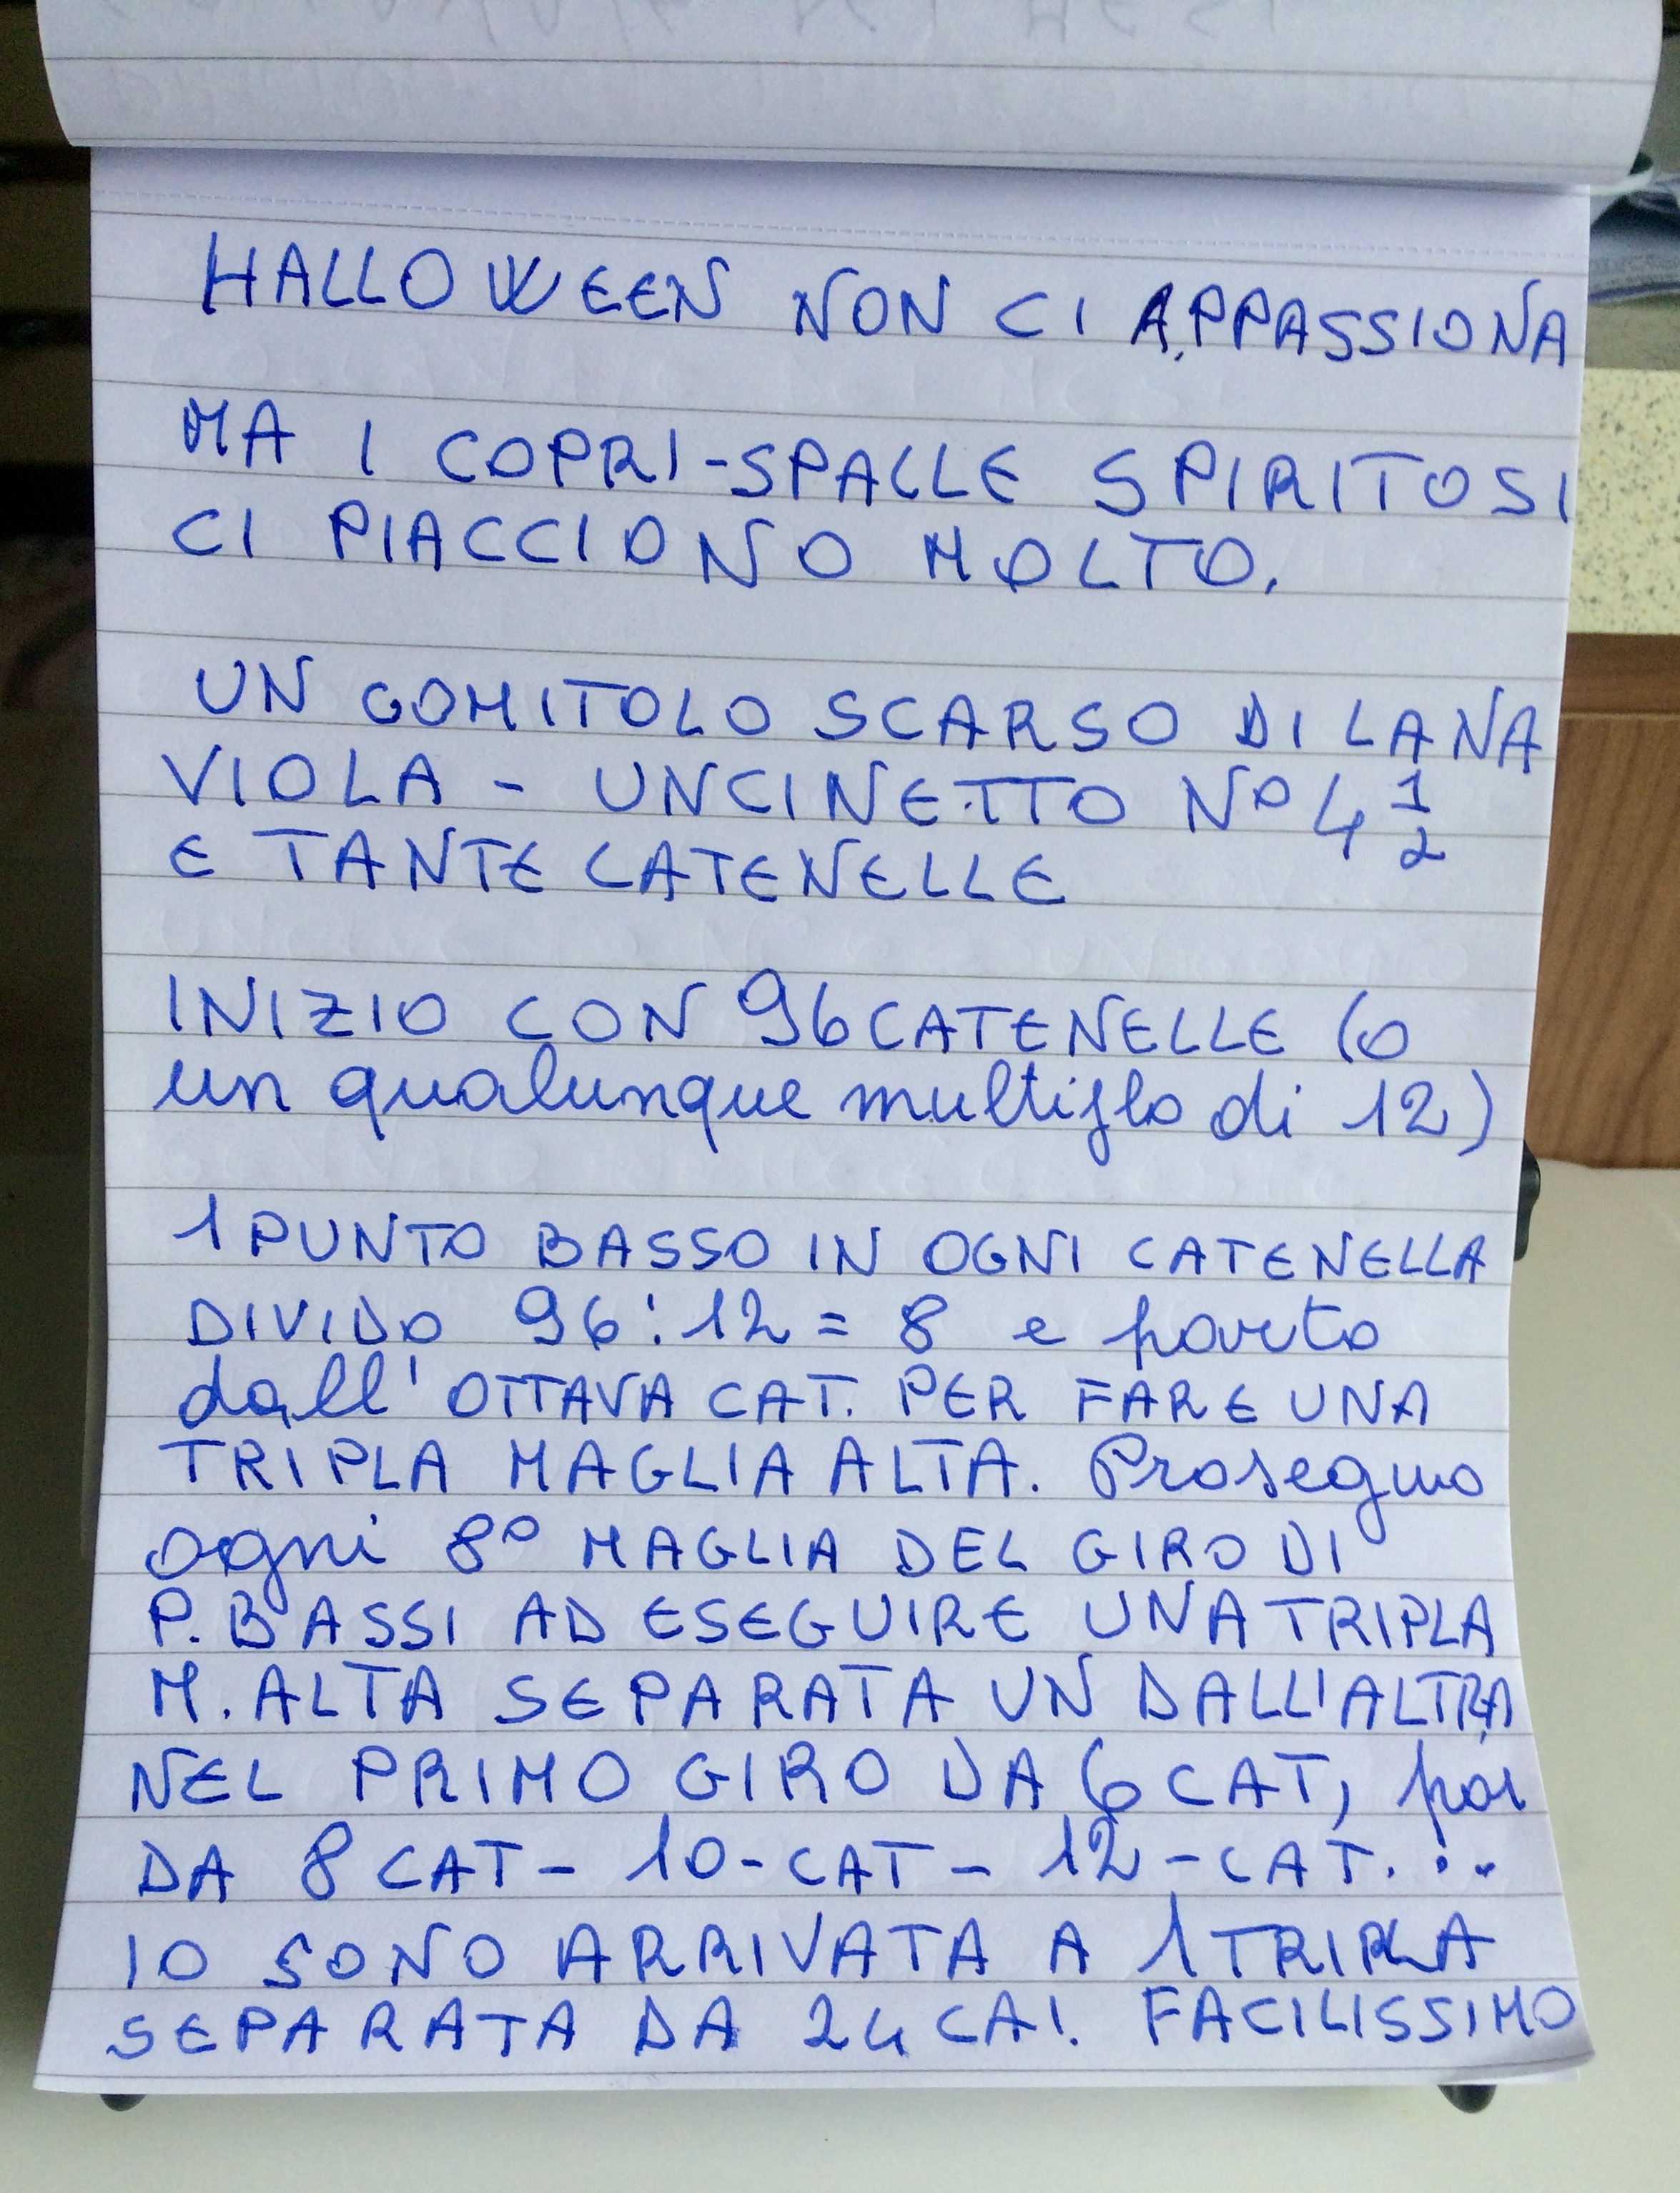 HALLOWEEN NON CI APPASSIONA
MA I COPRI-SPALLE SPIRITOSI
CI PIACCIONO MOLTO.
UN GOMITOLO SCARSO DI LANA
VIOLA - UNCINETTO Nº 4 1/2
E TANTE CATENELLE
INIZIO CON 96 CATENELLE (o
un qualunque multiplo di 12)
1 PUNTO BASSO IN OGNI CATENELLA
DIVIDO 96:12 = 8 e parto
dall'OTTAVA CAT. PER FARE UNA
TRIPLA MAGLIA ALTA. Proseguo
ogni 8º MAGLIA DEL GIRO DI
P. BASSI AD ESEGUIRE UNA TRIPLA
M. ALTA SEPARATA UN DALL'ALTRA
NEL PRIMO GIRO DA 6 CAT, poi
DA 8 CAT - 10-CAT - 12-CAT...
IO SONO ARRIVATA A 1 TRIPLA
SEPARATA DA 24 CAT. FACILISSIMO